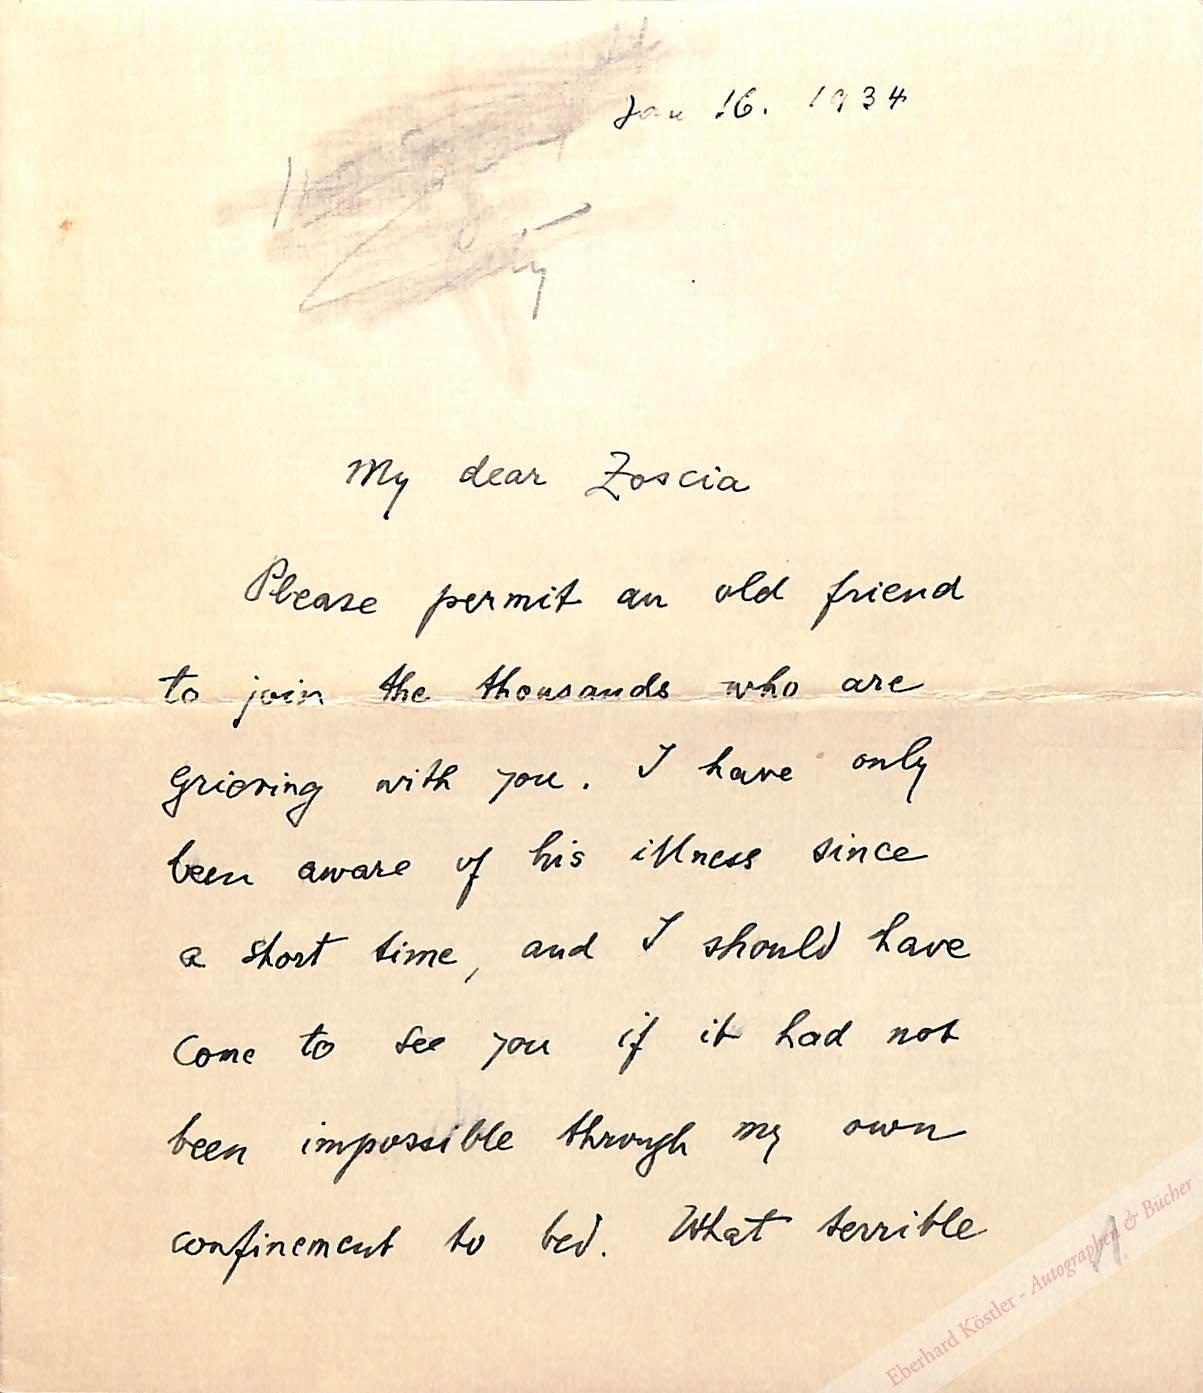 Jan 16. 1934
My dear Zoscia
Please permit an old friend
to join the thousands who are
grieving with you. I have only
been aware of his illness since
a short time, and I should have
come to see you if it had not
been impossible through my own
confinement to bed. What terrible
Eberhard Köstler - Autographen & Bücher